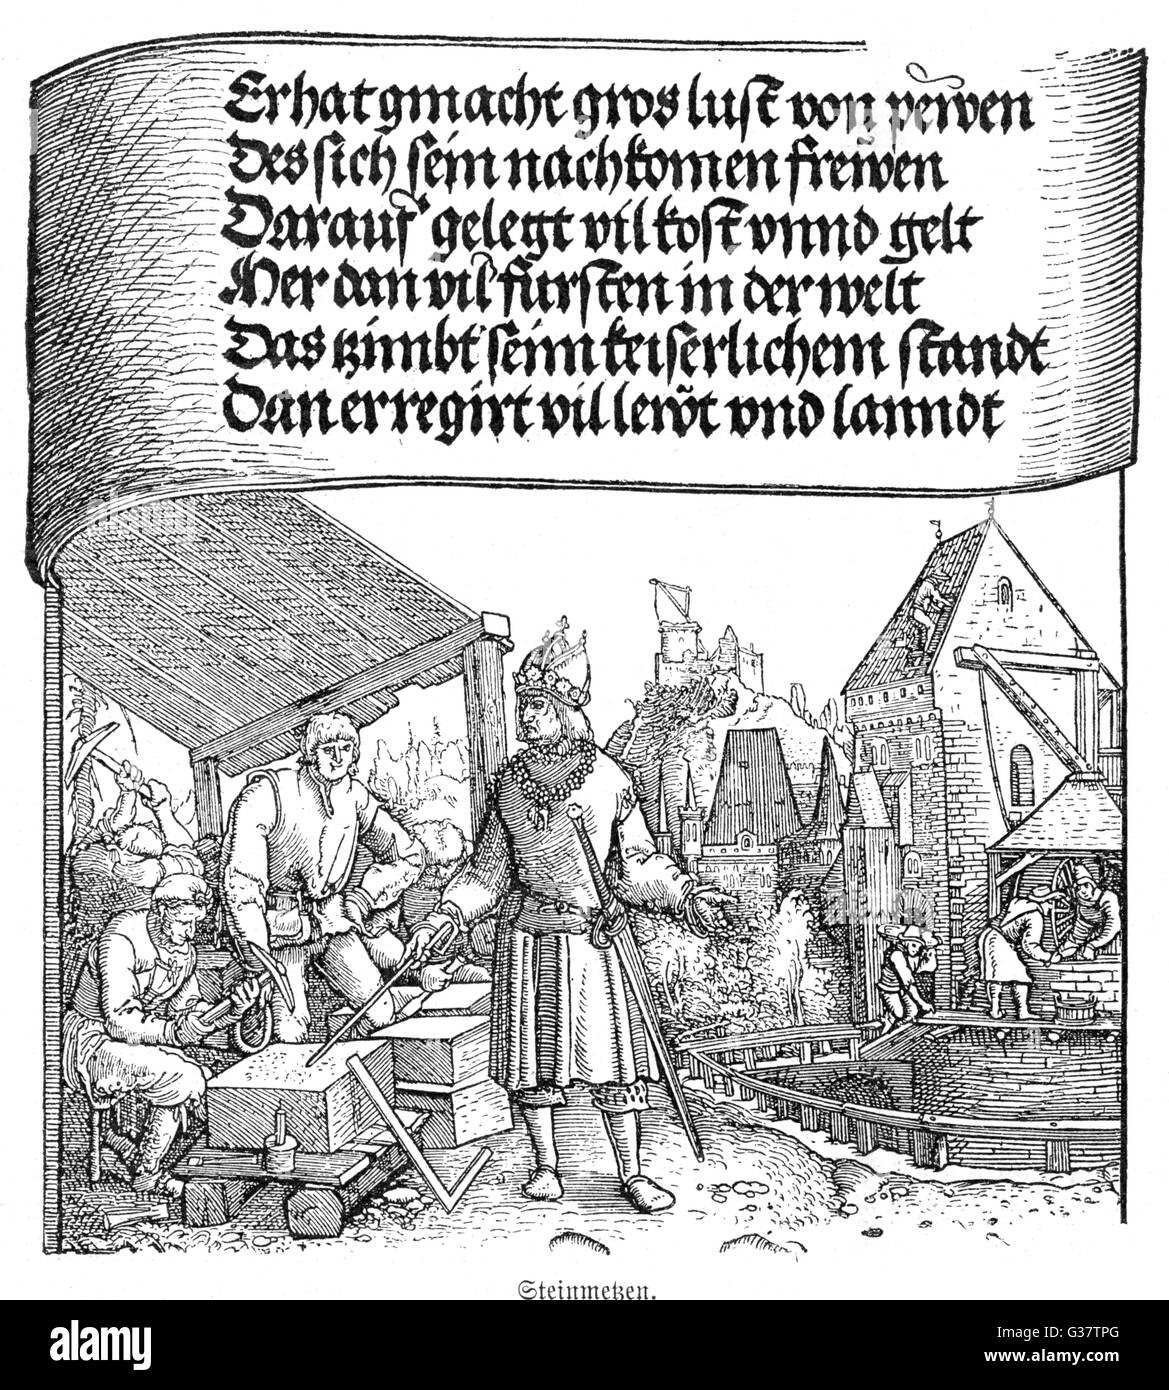 Er hat gmacht gros lust von pewen
Des sich sein nachkomen frewen
Darauf gelegt vil kost vnnd gelt
Mer dan vil fürsten in der welt
Das tzimbt seim keiserlichem standt
Dan er regirt vil lewt vnd lanndt
Steinmetzen.
alamy
Image ID: G37TPG
www.alamy.com